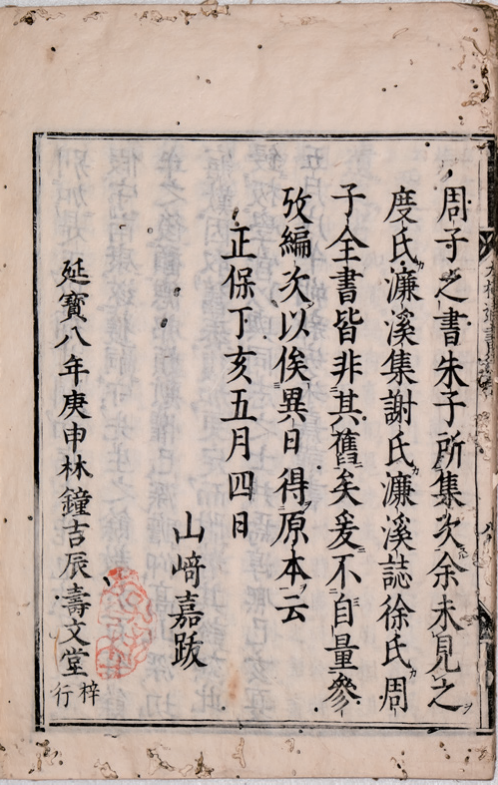 周子之書朱子所集次余未見之
度氏濂溪集謝氏濂溪誌徐氏周
子全書皆非其舊矣爰不自量參
攷編次以俟異日得原本云
正保丁亥五月四日
山﨑嘉跋
延寶八年庚申林鐘吉辰壽文堂
梓行